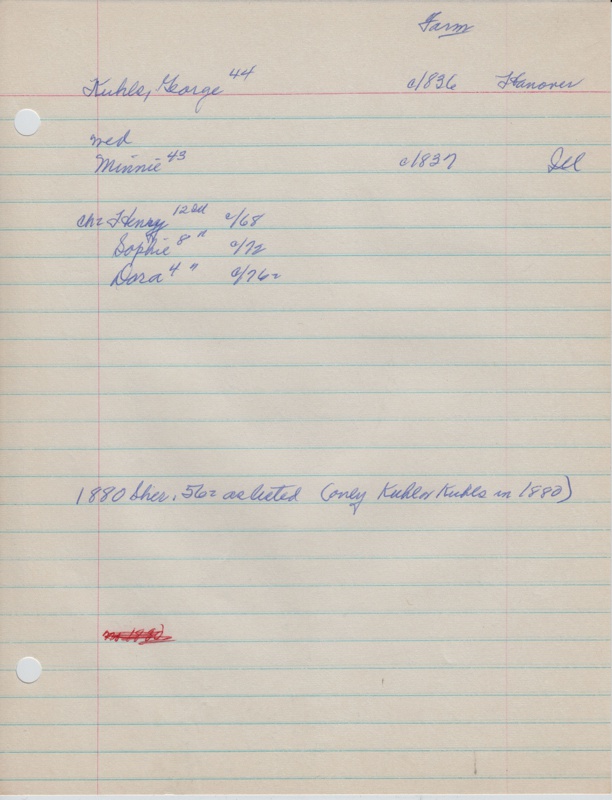 Farm
Kuhls, George 44 c/1836 Hanover
wed
Minnie 43 c/1837 Ill
ch= Henry 12 Ill c/68
Sophie 8 " c/72
Dora 4 " c/76=
1880 Sher. 56= as listed (only Kuhl or Kuhls in 1880)